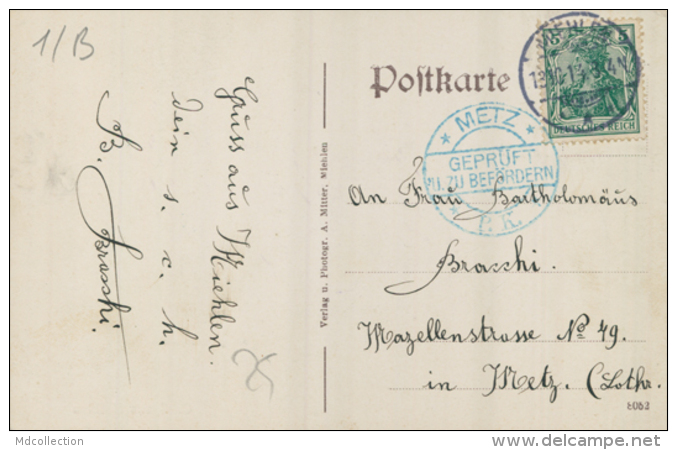 1/B
Gruss aus Miehlen.
dein s. c. h.
B. Brasshi.
Verlag u. Photogr. A. Mitter, Miehlen
Postkarte
5 5
DEUTSCHES REICH
METZ
GEPRÜFT
U. ZU BEFÖRDERN
P. K.
An Frau Bartholomäus
Brasshi.
Mazellenstrasse No 49.
in Metz. (Lothr.
8062
Mdcollection
www.delcampe.net